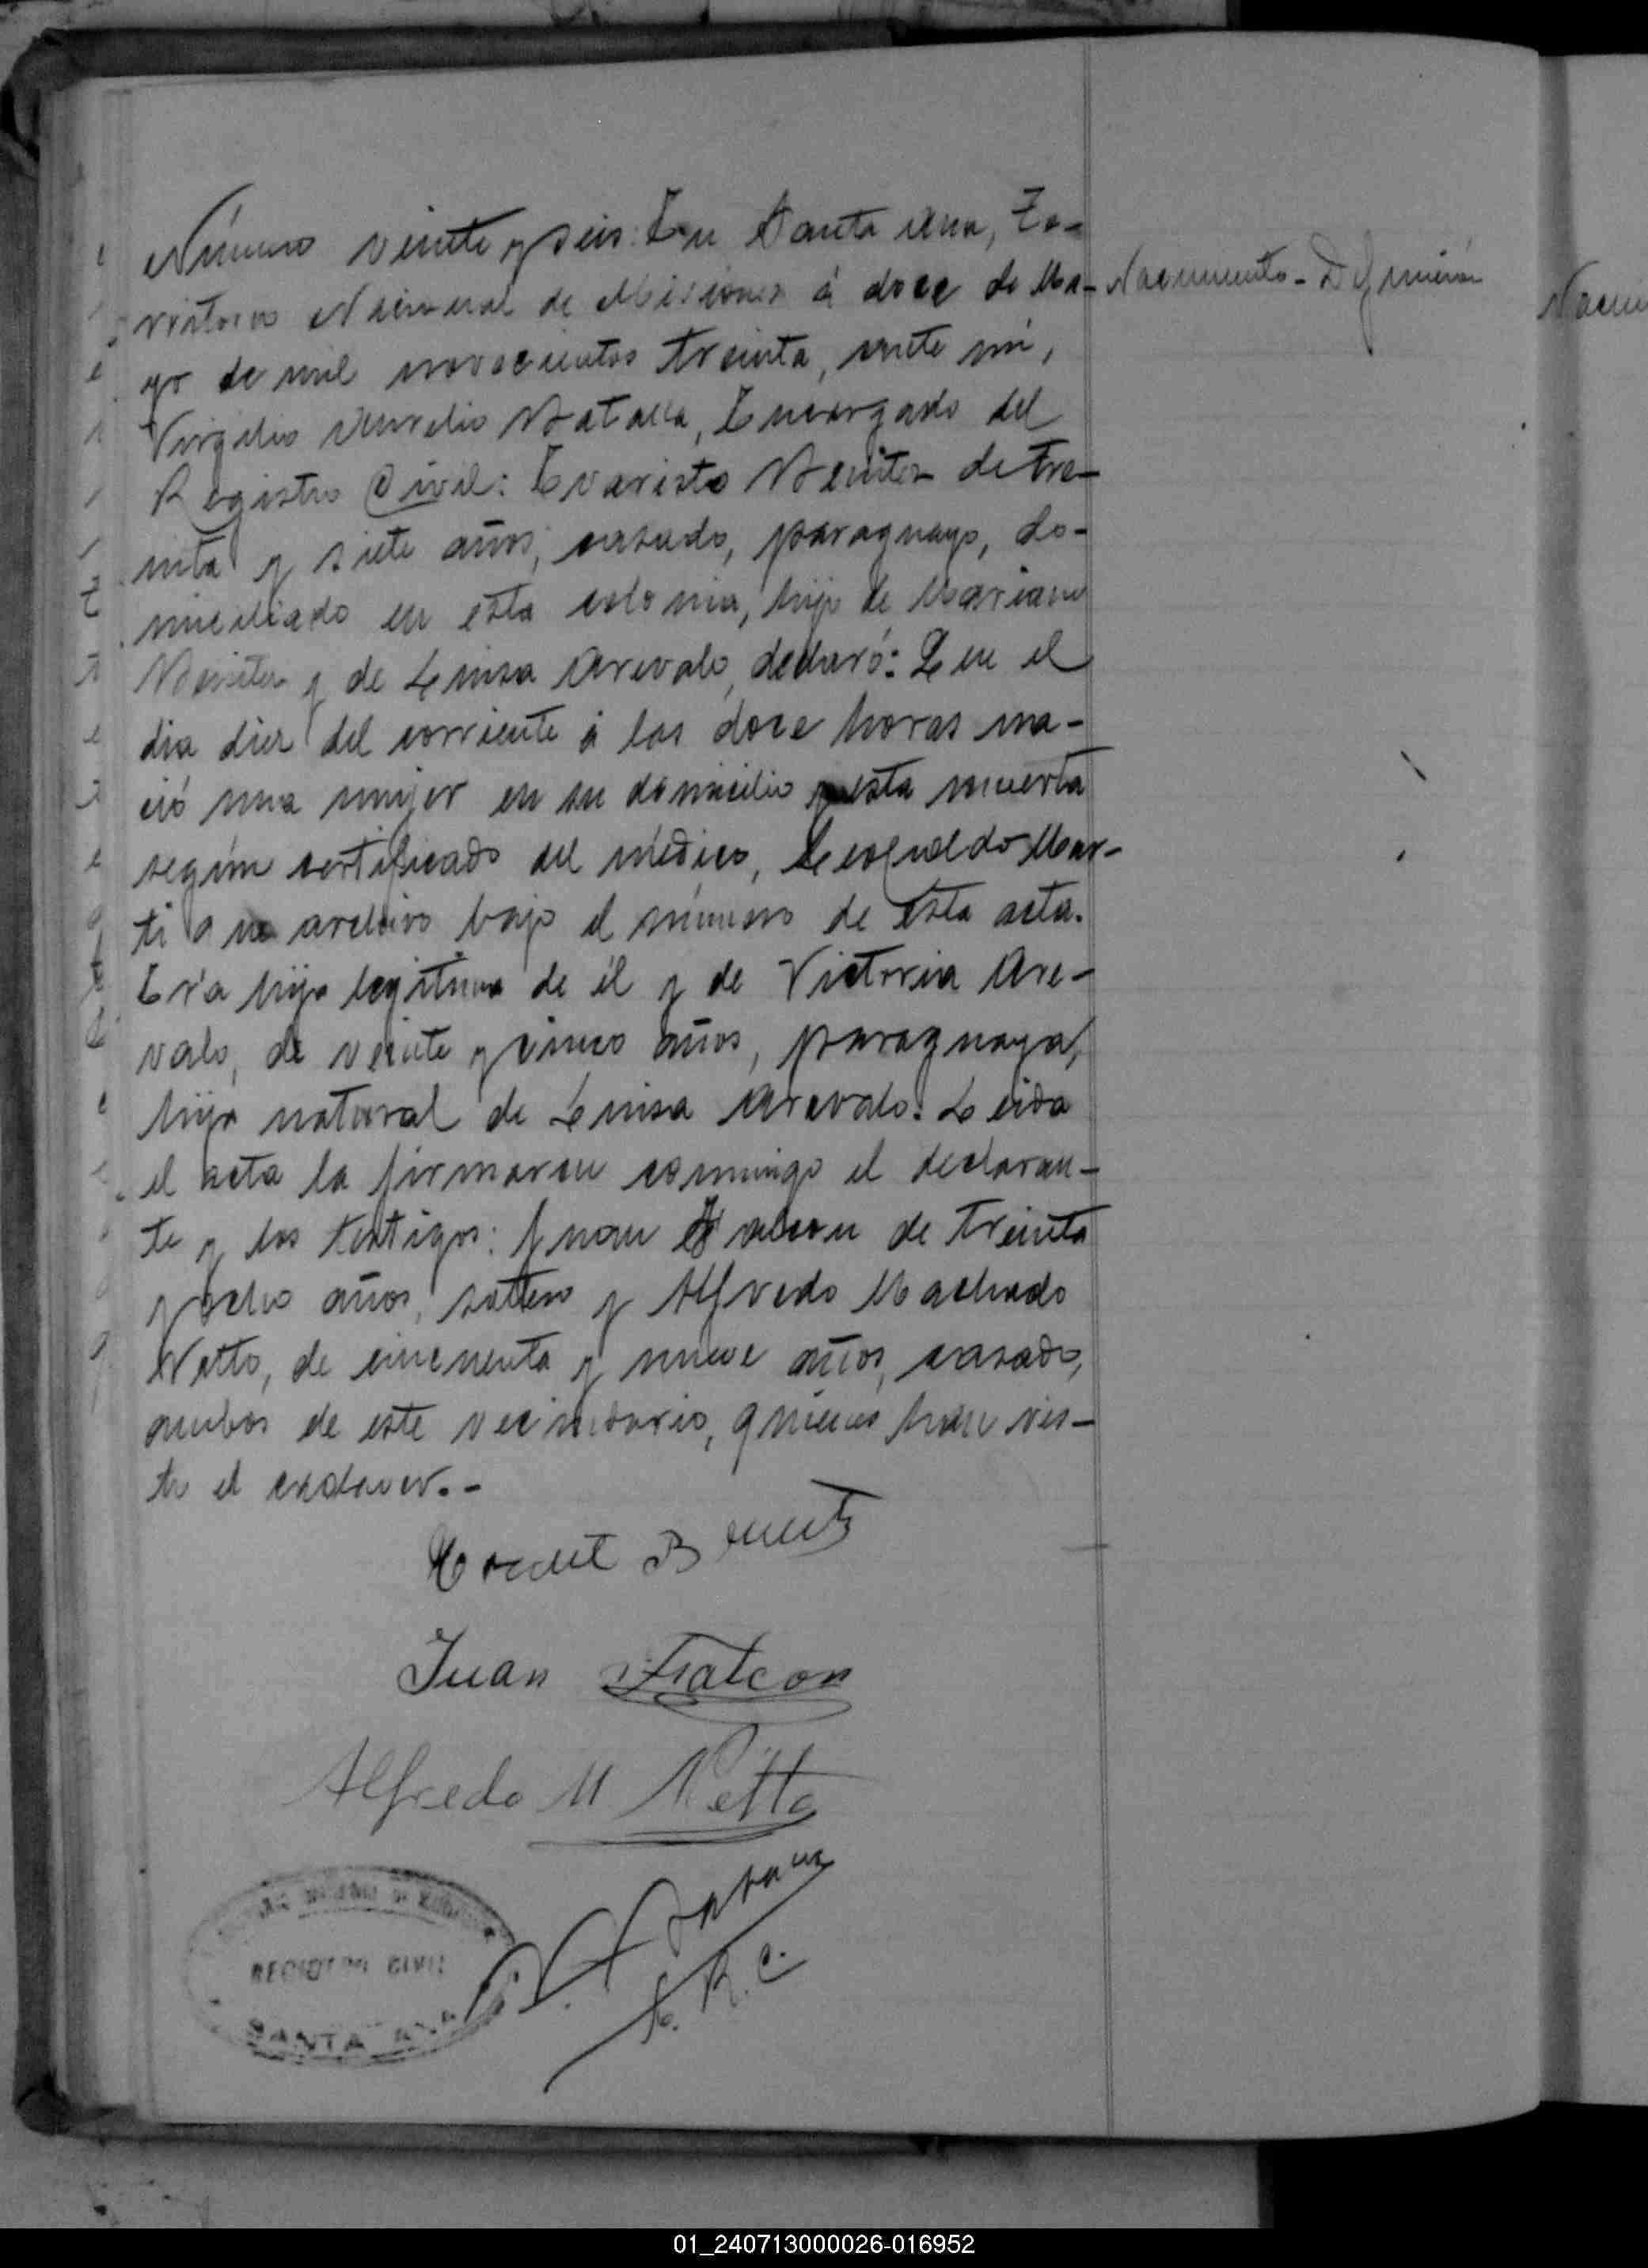 Número veinte y seis: En Santa Ana, Te-
rritorio Nacional de Misiones á doce de Ma-
yo de mil novecientos treinta, ante mi,
Virgilio Aurelio Batalla, Encargado del
Registro Civil: Evaristo Benitez de tre-
inta y siete años, casado, paraguayo, do-
miciliado en esta colonia, hijo de Mariano
Benitez y de Luisa Arevalo, declaró: Que el
dia diez del corriente á las doce horas na-
ció una mujer en su domicilio y esta muerta
según certificado del médico, Leopoldo Mar-
ti que archivo bajo el número de esta acta.
Era hija legitima de él y de Victoria Are-
valo, de veinte y cinco años, paraguaya,
hija natural de Luisa Arevalo. Leida
el acta la firmaron conmigo el declaran-
te y los testigos: Juan Falcon de treinta
y ocho años, soltero y Alfredo Machado
Netto, de cincuenta y nueve años, casado,
ambos de este vecindario, quienes han vis-
to el cadaver.-
Nacimiento - Defunción
Naci
Juan Falcon
Alfredo M Netto
E. R. C.
REGISTRO CIVIL
SANTA ANA
01_240713000026-016952